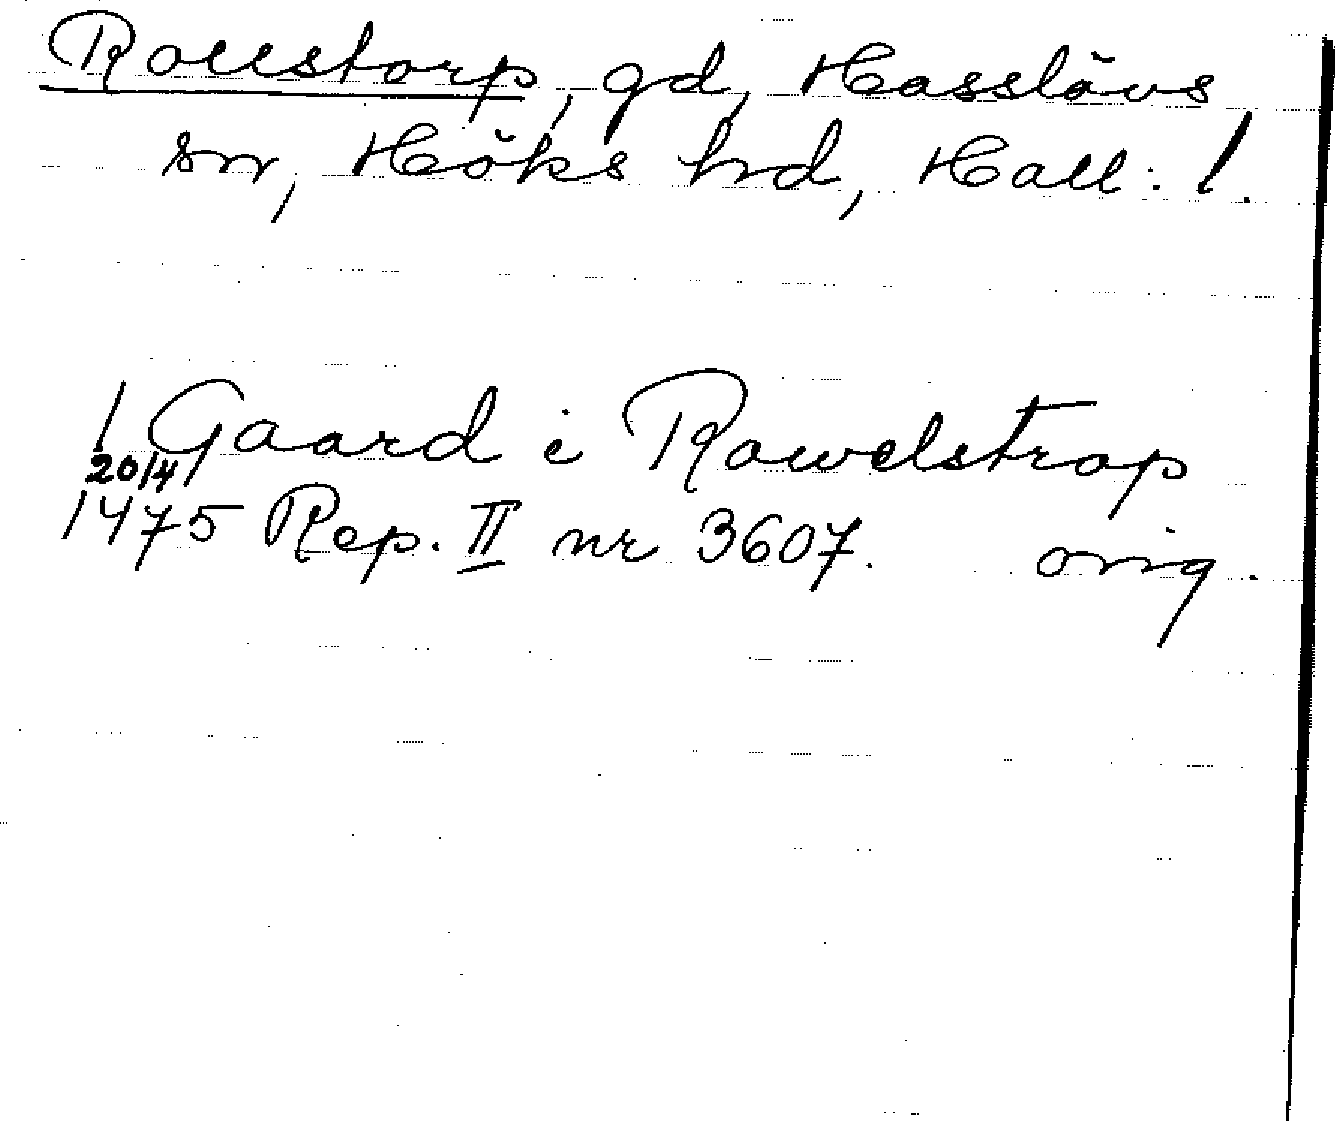 Rollstorp, gd, Hasslövs
sn, Höks hd, Hall. l.
1 Gaard i Rawelstrop
20/4
1475 Rep. II nr 3607. orig.